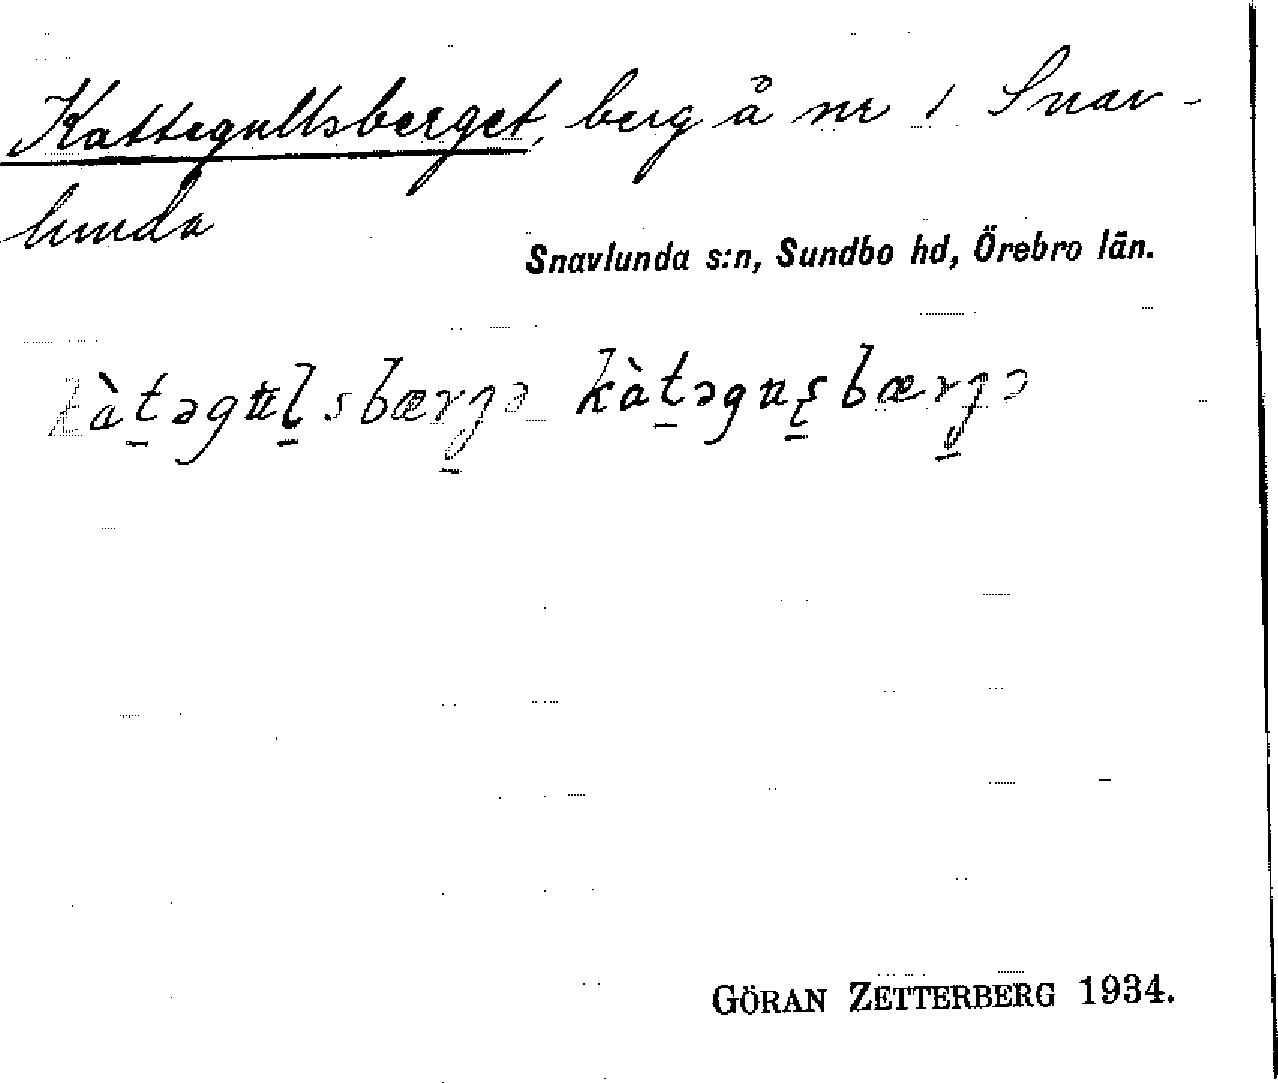 Kattegullsberget, berg å nr 1 Snav-
lunda
Snavlunda s:n, Sundbo hd, Örebro län.
kàt̠əgᵾl̠sbærɟ̠ə kàt̠əgᵾʂ̠bærɟ̠ə
GÖRAN ZETTERBERG 1934.